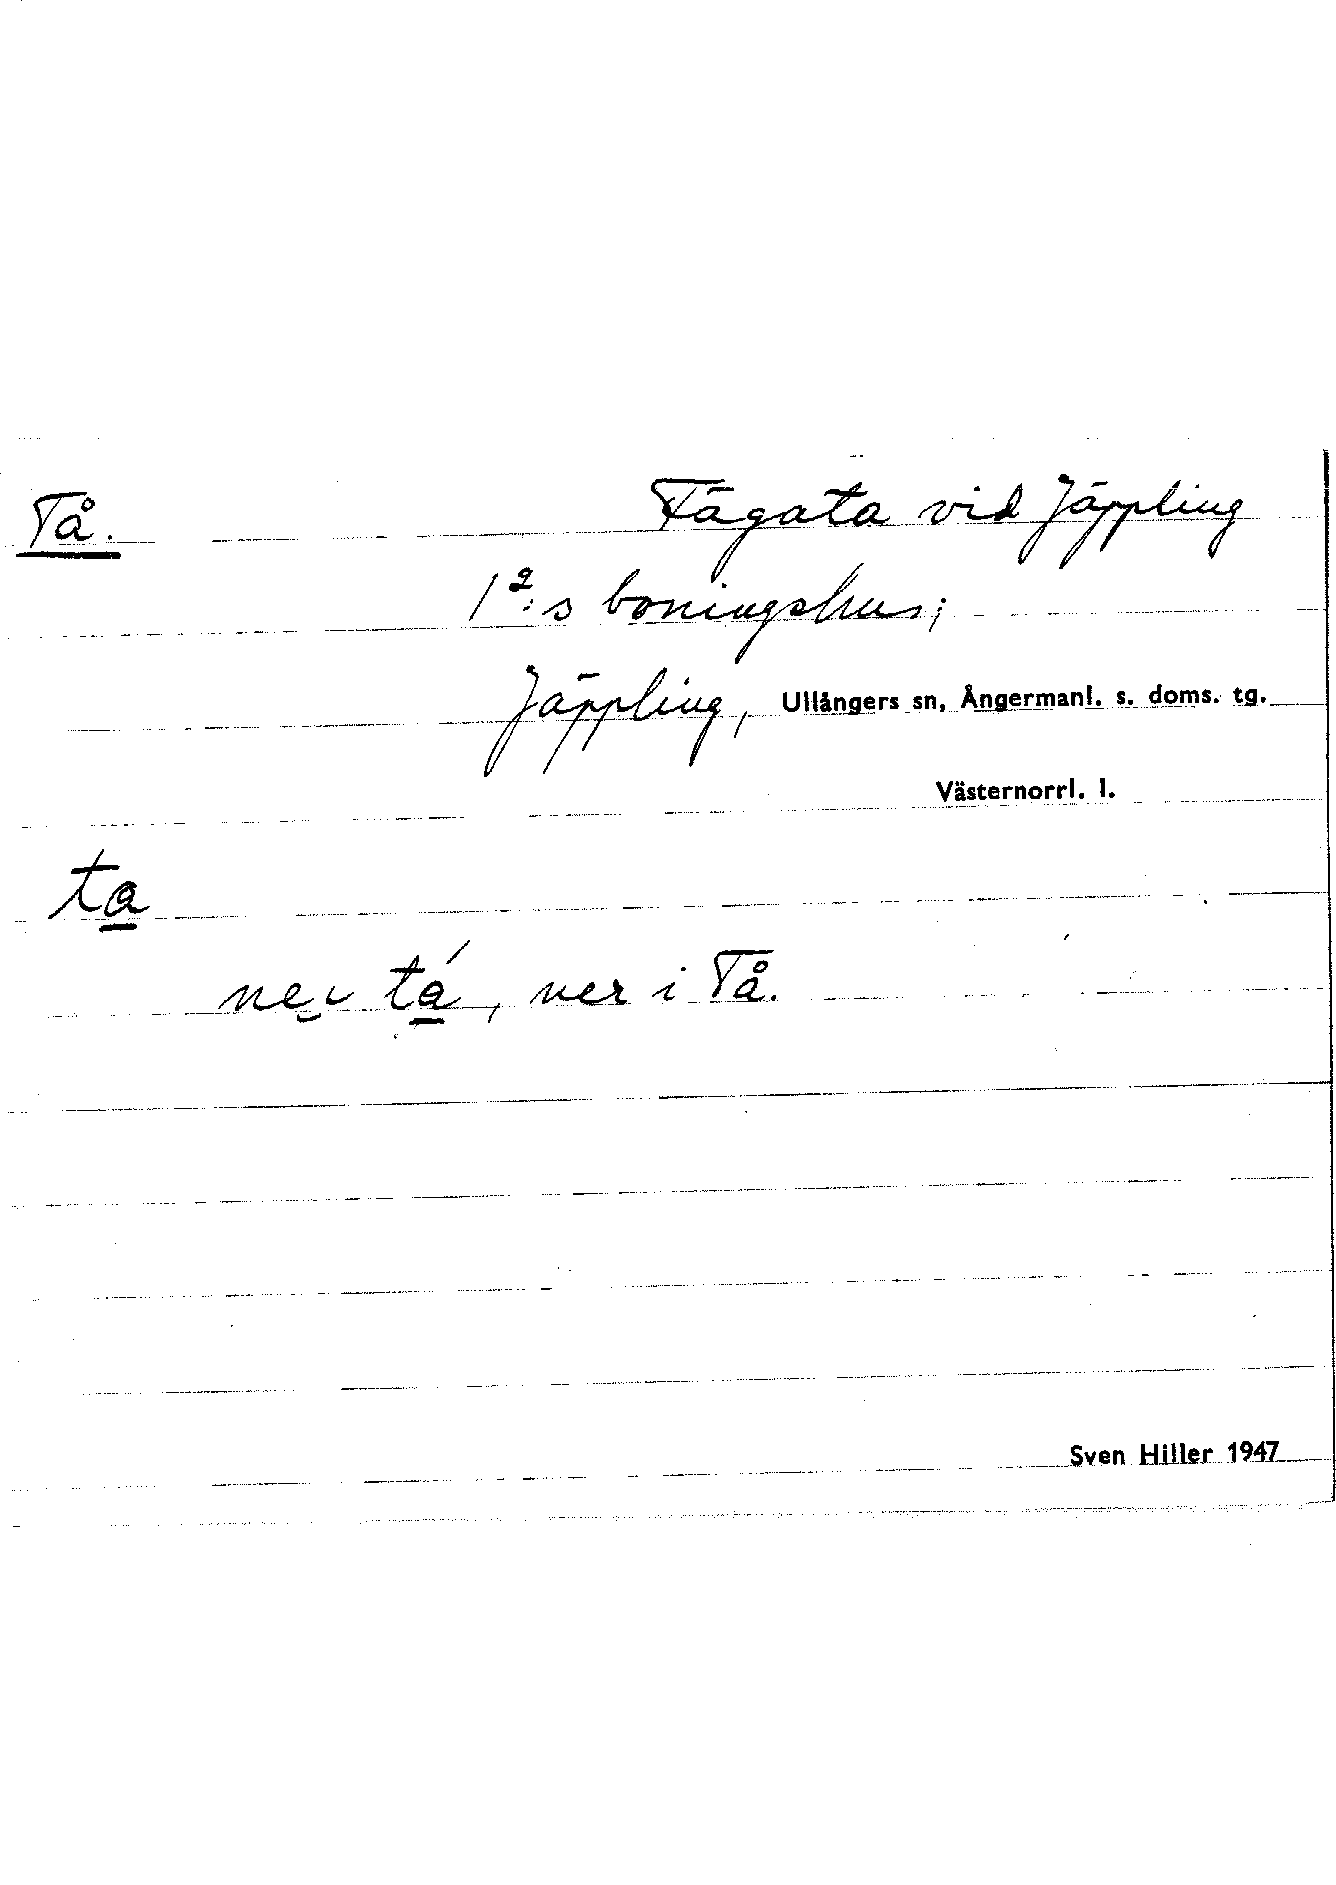 Tå. Fägata vid Jäppling
1²:s boningshus;
Jäppling, Ullångers sn, Ångermanl. s. doms. tg.
Västernorrl. l.
ta
ner tá, ner i Tå.
Sven Hiller 1947